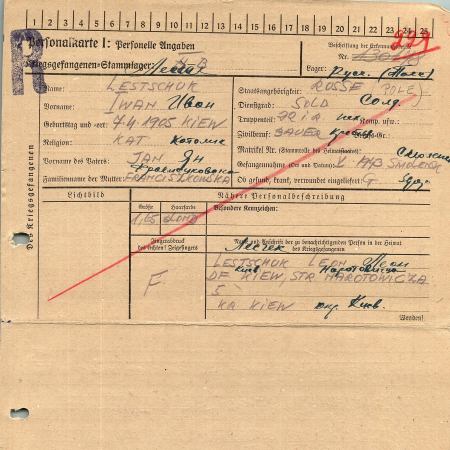 1 2 3 4 5 6 7 8 9 10 11 12 13 14 15 16 17 18 19 20 21 22 23 24 25
R
Personalkarte I: Personelle Angaben
Beschriftung der Erkennungsmarke
999
Kriegsgefangenen-Stammlager:
Nr.
Lager:
Des Kriegsgefangenen
Name: LESTSCHUK
Staatsangehörigkeit: RUSSE (POLE)
Vorname: IWAN Иван
Dienstgrad: SOLD Солд
Geburtstag und -ort: 7.4.1905 KIEW
Truppenteil: Komp. usw.:
Religion: KAT.
Zivilberuf: BAUER
Vorname des Vaters: JAN Ян
Matrikel Nr. (Stammrolle des Heimatstaates):
Gefangennahme (Ort und Datum): V 1943 SMOLENSK
Familienname der Mutter: FRANCISZKOWSKA
Ob gesund, krank, verwundet eingeliefert: G
Lichtbild
Nähere Personalbeschreibung
Größe Haarfarbe
Besondere Kennzeichen:
1,65 BLOND
Fingerabdruck
des rechten! Zeigefingers
Name und Anschrift der zu benachrichtigenden Person in der Heimat
des Kriegsgefangenen
F
LESTSCHUK LEON Леон
KIEW, STR NAROTOWICZA
5
KR KIEW окр. Киев.
Wenden!